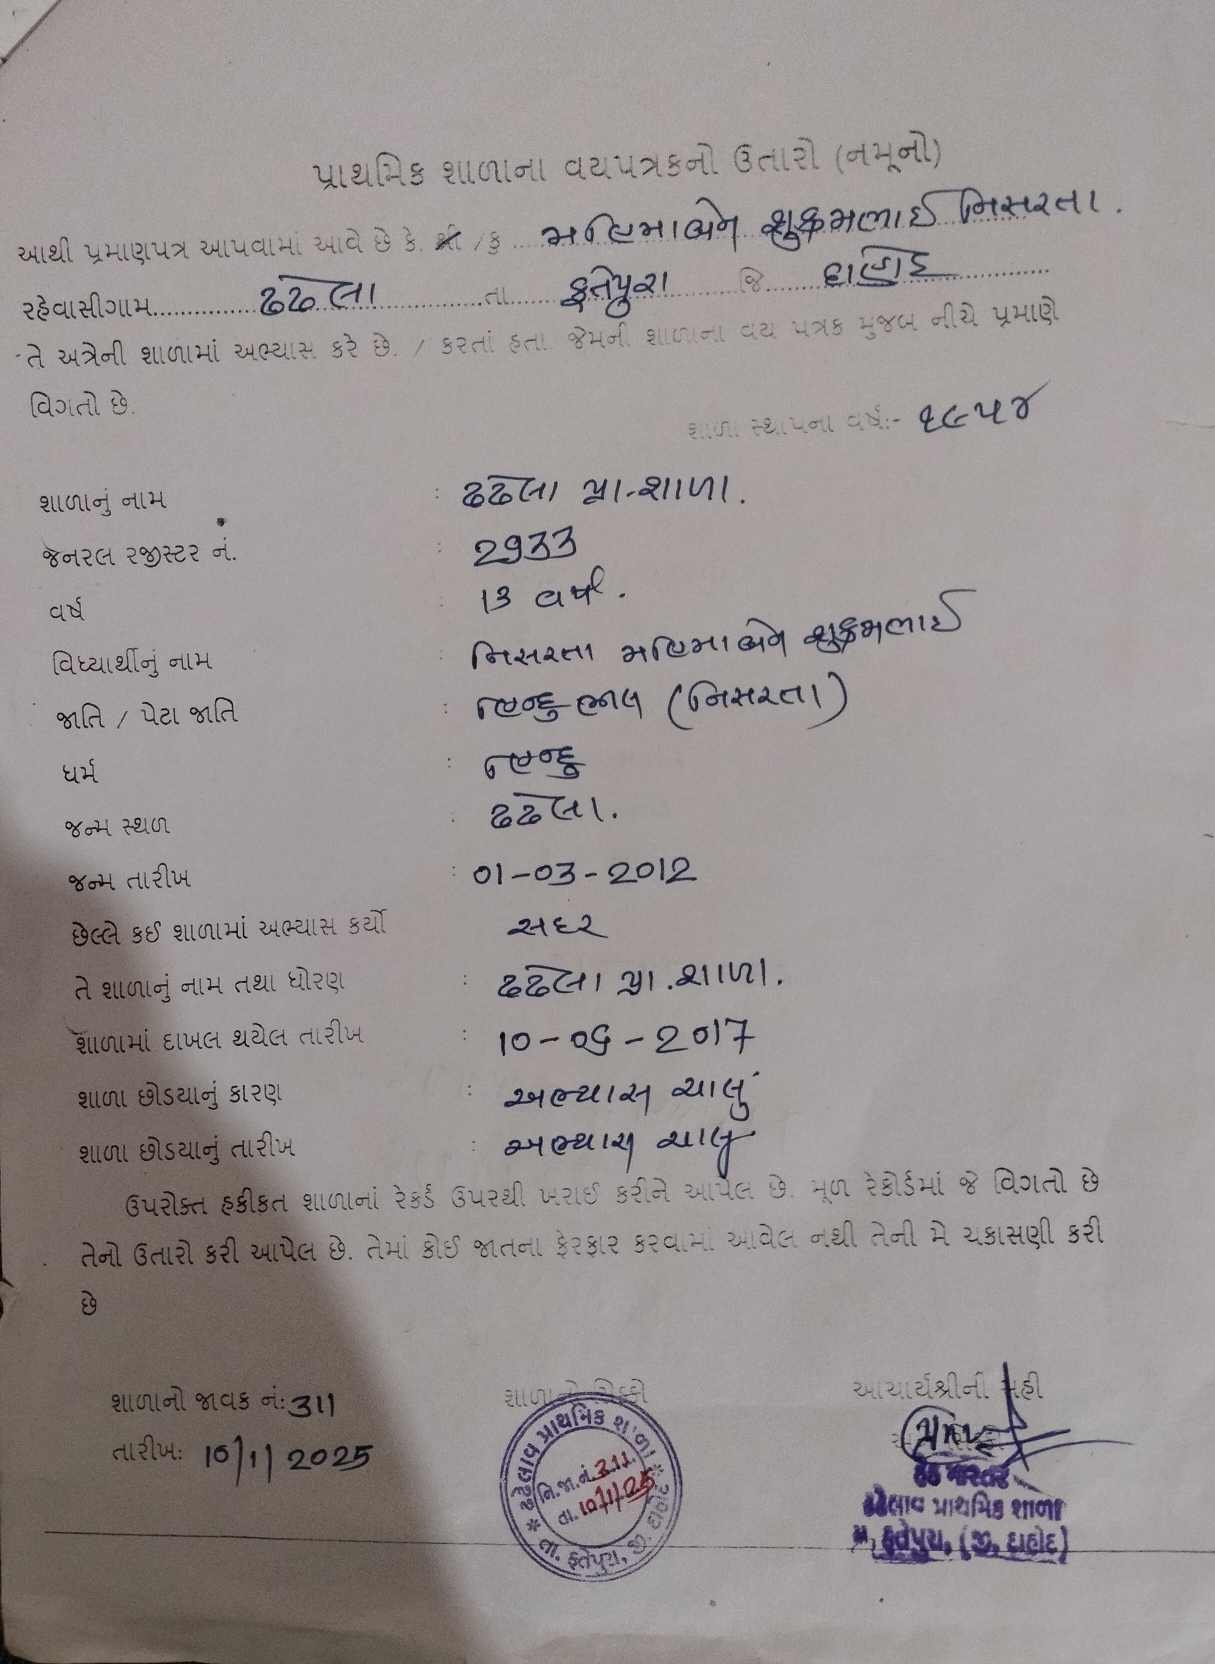 પ્રાથમિક શાળાના વયપત્રકનો ઉતારો (નમૂનો)
આથી પ્રમાણપત્ર આપવામાં આવે છે કે. શ્રી /કુ ... મહિમાબેન નિસરતા.
રહેવાસીગામ............... ઢઢેલા ...............તા...... ફતેપુરા ......... જિ...... દાહોદ ...............
તે અત્રેની શાળામાં અભ્યાસ કરે છે. / કરતાં હતા. જેમની શાળાના વય પત્રક મુજબ નીચે પ્રમાણે
વિગતો છે.
શાળા સ્થાપના વર્ષ:- ૧૯૫૪
શાળાનું નામ : ઢઢેલા પ્રા-શાળા.
જનરલ રજીસ્ટર નં. : 2933
વર્ષ : 13 વર્ષ.
વિદ્યાર્થીનું નામ : નિસરતા મહિમાબેન
જાતિ / પેટા જાતિ : હિન્દુ ભીલ (નિસરતા)
ધર્મ : હિન્દુ
જન્મ સ્થળ : ઢઢેલા.
જન્મ તારીખ : 01-03-2012
છેલ્લે કઈ શાળામાં અભ્યાસ કર્યો સદર
તે શાળાનું નામ તથા ધોરણ : ઢઢેલા પ્રા.શાળા.
શાળામાં દાખલ થયેલ તારીખ : 10-06-2017
શાળા છોડયાનું કારણ : અભ્યાસ ચાલું
શાળા છોડયાનું તારીખ : અભ્યાસ ચાલુ
ઉપરોક્ત હકીકત શાળાનાં રેકર્ડ ઉપરથી ખરાઈ કરીને આપેલ છે. મૂળ રેકોર્ડમાં જે વિગતો છે
તેનો ઉતારો કરી આપેલ છે. તેમાં કોઈ જાતના ફેરફાર કરવામાં આવેલ નથી તેની મે ચકાસણી કરી
છે
શાળાનો જાવક નં: 311
શાળાનો સિક્કો
આચાર્યશ્રીની સહી
તારીખ: 10/1/2025
ઢઢેલાવ પ્રાથમિક શાળા
નિ.જા.નં. 311
તા. 10/1/25
* તા. ફતેપુરા, જી. દાહોદ *
હેડ માસ્તર
ઢઢેલાવ પ્રાથમિક શાળા
ફતેપુરા, (જી. દાહોદ)